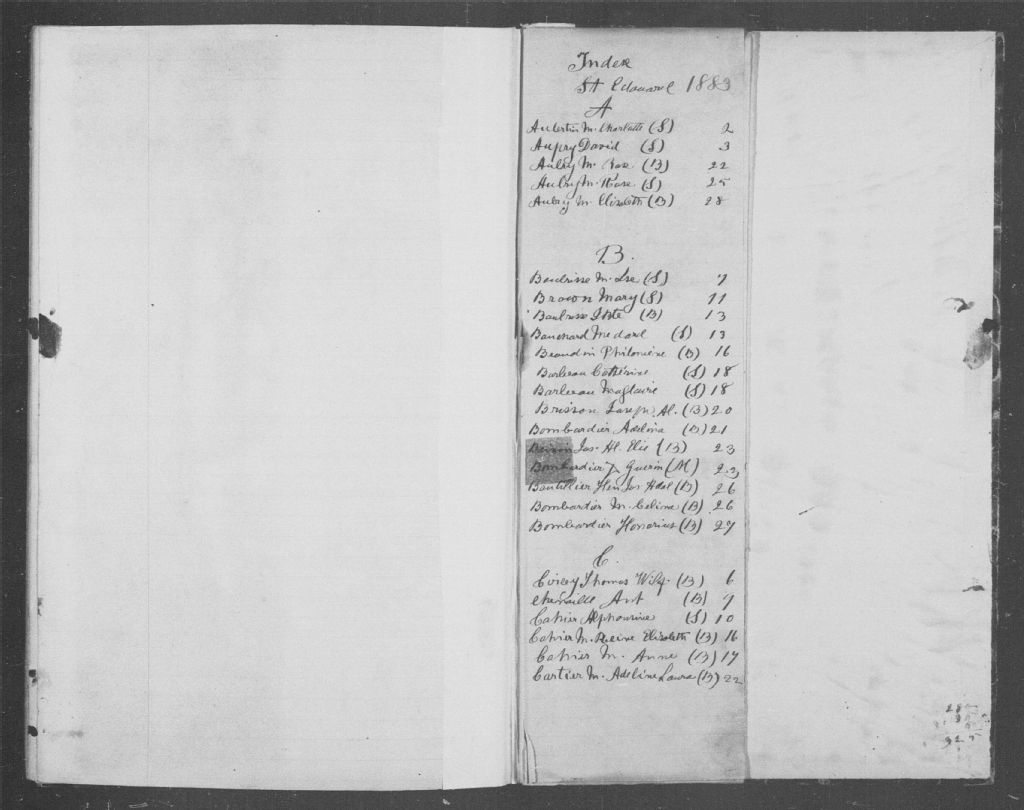 Index
St Edouard 1883
A
Aubertin M. Charlotte (S) 2
Aupry David (S) 3
Aubry M. Rose (B) 22
Aubry M. Rose (S) 25
Aubry M. Elizabeth (B) 28
B.
M. (S) 7
Brown Mary (S) 11
(B) 13
Medard (S) 13
Beaudin Philomène (B) 16
Barbeau Catherine (S) 18
Barbeau (S) 18
Brisson Joseph Al. (B) 20
Bombardier Adelina (B) 21
Jos. Al. Elie (B) 23
Bombardier & Guerin (M) 23
Boutillier Hen Jos (B) 26
Bombardier M. Celina (B) 26
Bombardier Honorius (B) 27
C.
Thomas (B) 6
Ant (B) 7
Cahier Alphonsine (S) 10
Cahier M. Reine Elizabeth (B) 16
Cahier M. Anne (B) 17
Cartier M. Adeline Laura (B) 22
28
3
325